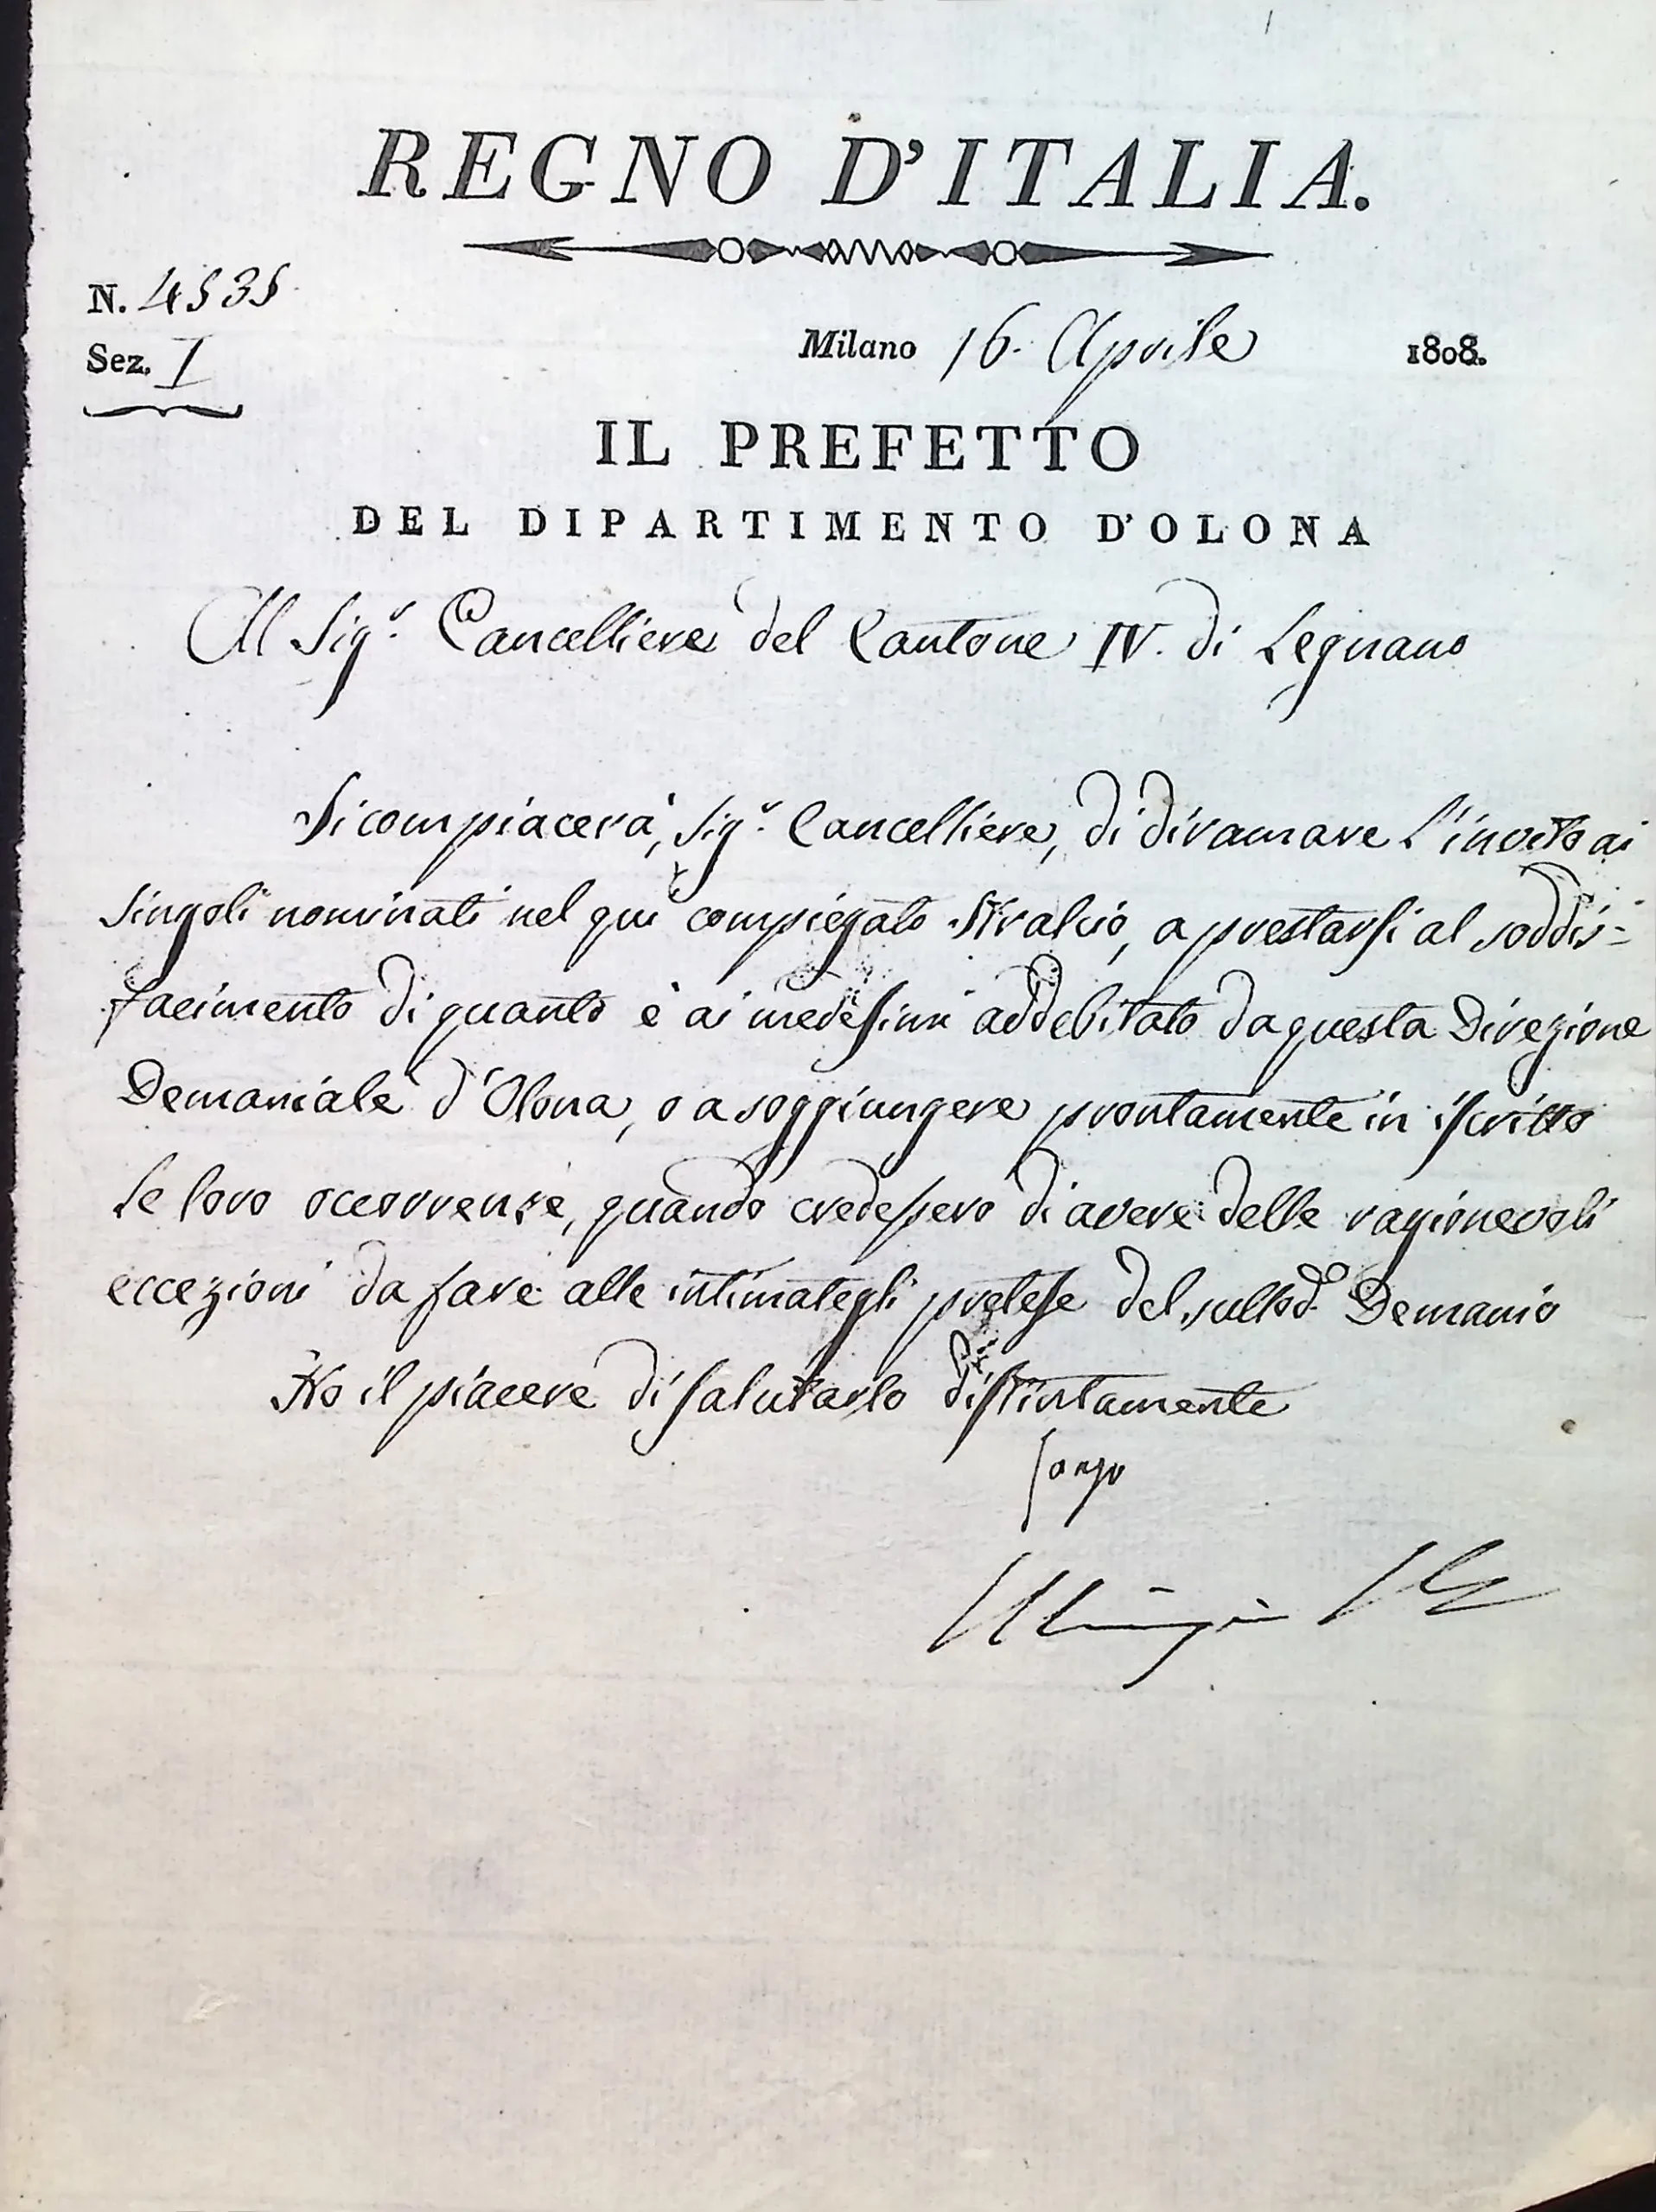 REGNO D'ITALIA.
N. 4535
Sez. I
Milano 16. Aprile 1808.
IL PREFETTO
DEL DIPARTIMENTO D'OLONA
Al Sig.r Cancelliere del Cantone IV. di Legnano
Si compiacerà, Sig.r Cancelliere, di diramare l'invito ai
singoli nominati nel qui compiegato Stralcio, a prestarsi al soddis=
facimento di quanto è ai medesimi addebitato da questa Direzione
Demaniale d'Olona, o a soggiungere prontamente in iscritto
le loro occorrenze, quando credessero di avere delle ragionevoli
eccezioni da fare alle intimategli pretese del sullod.o Demanio
Ho il piacere di salutarlo distintamente